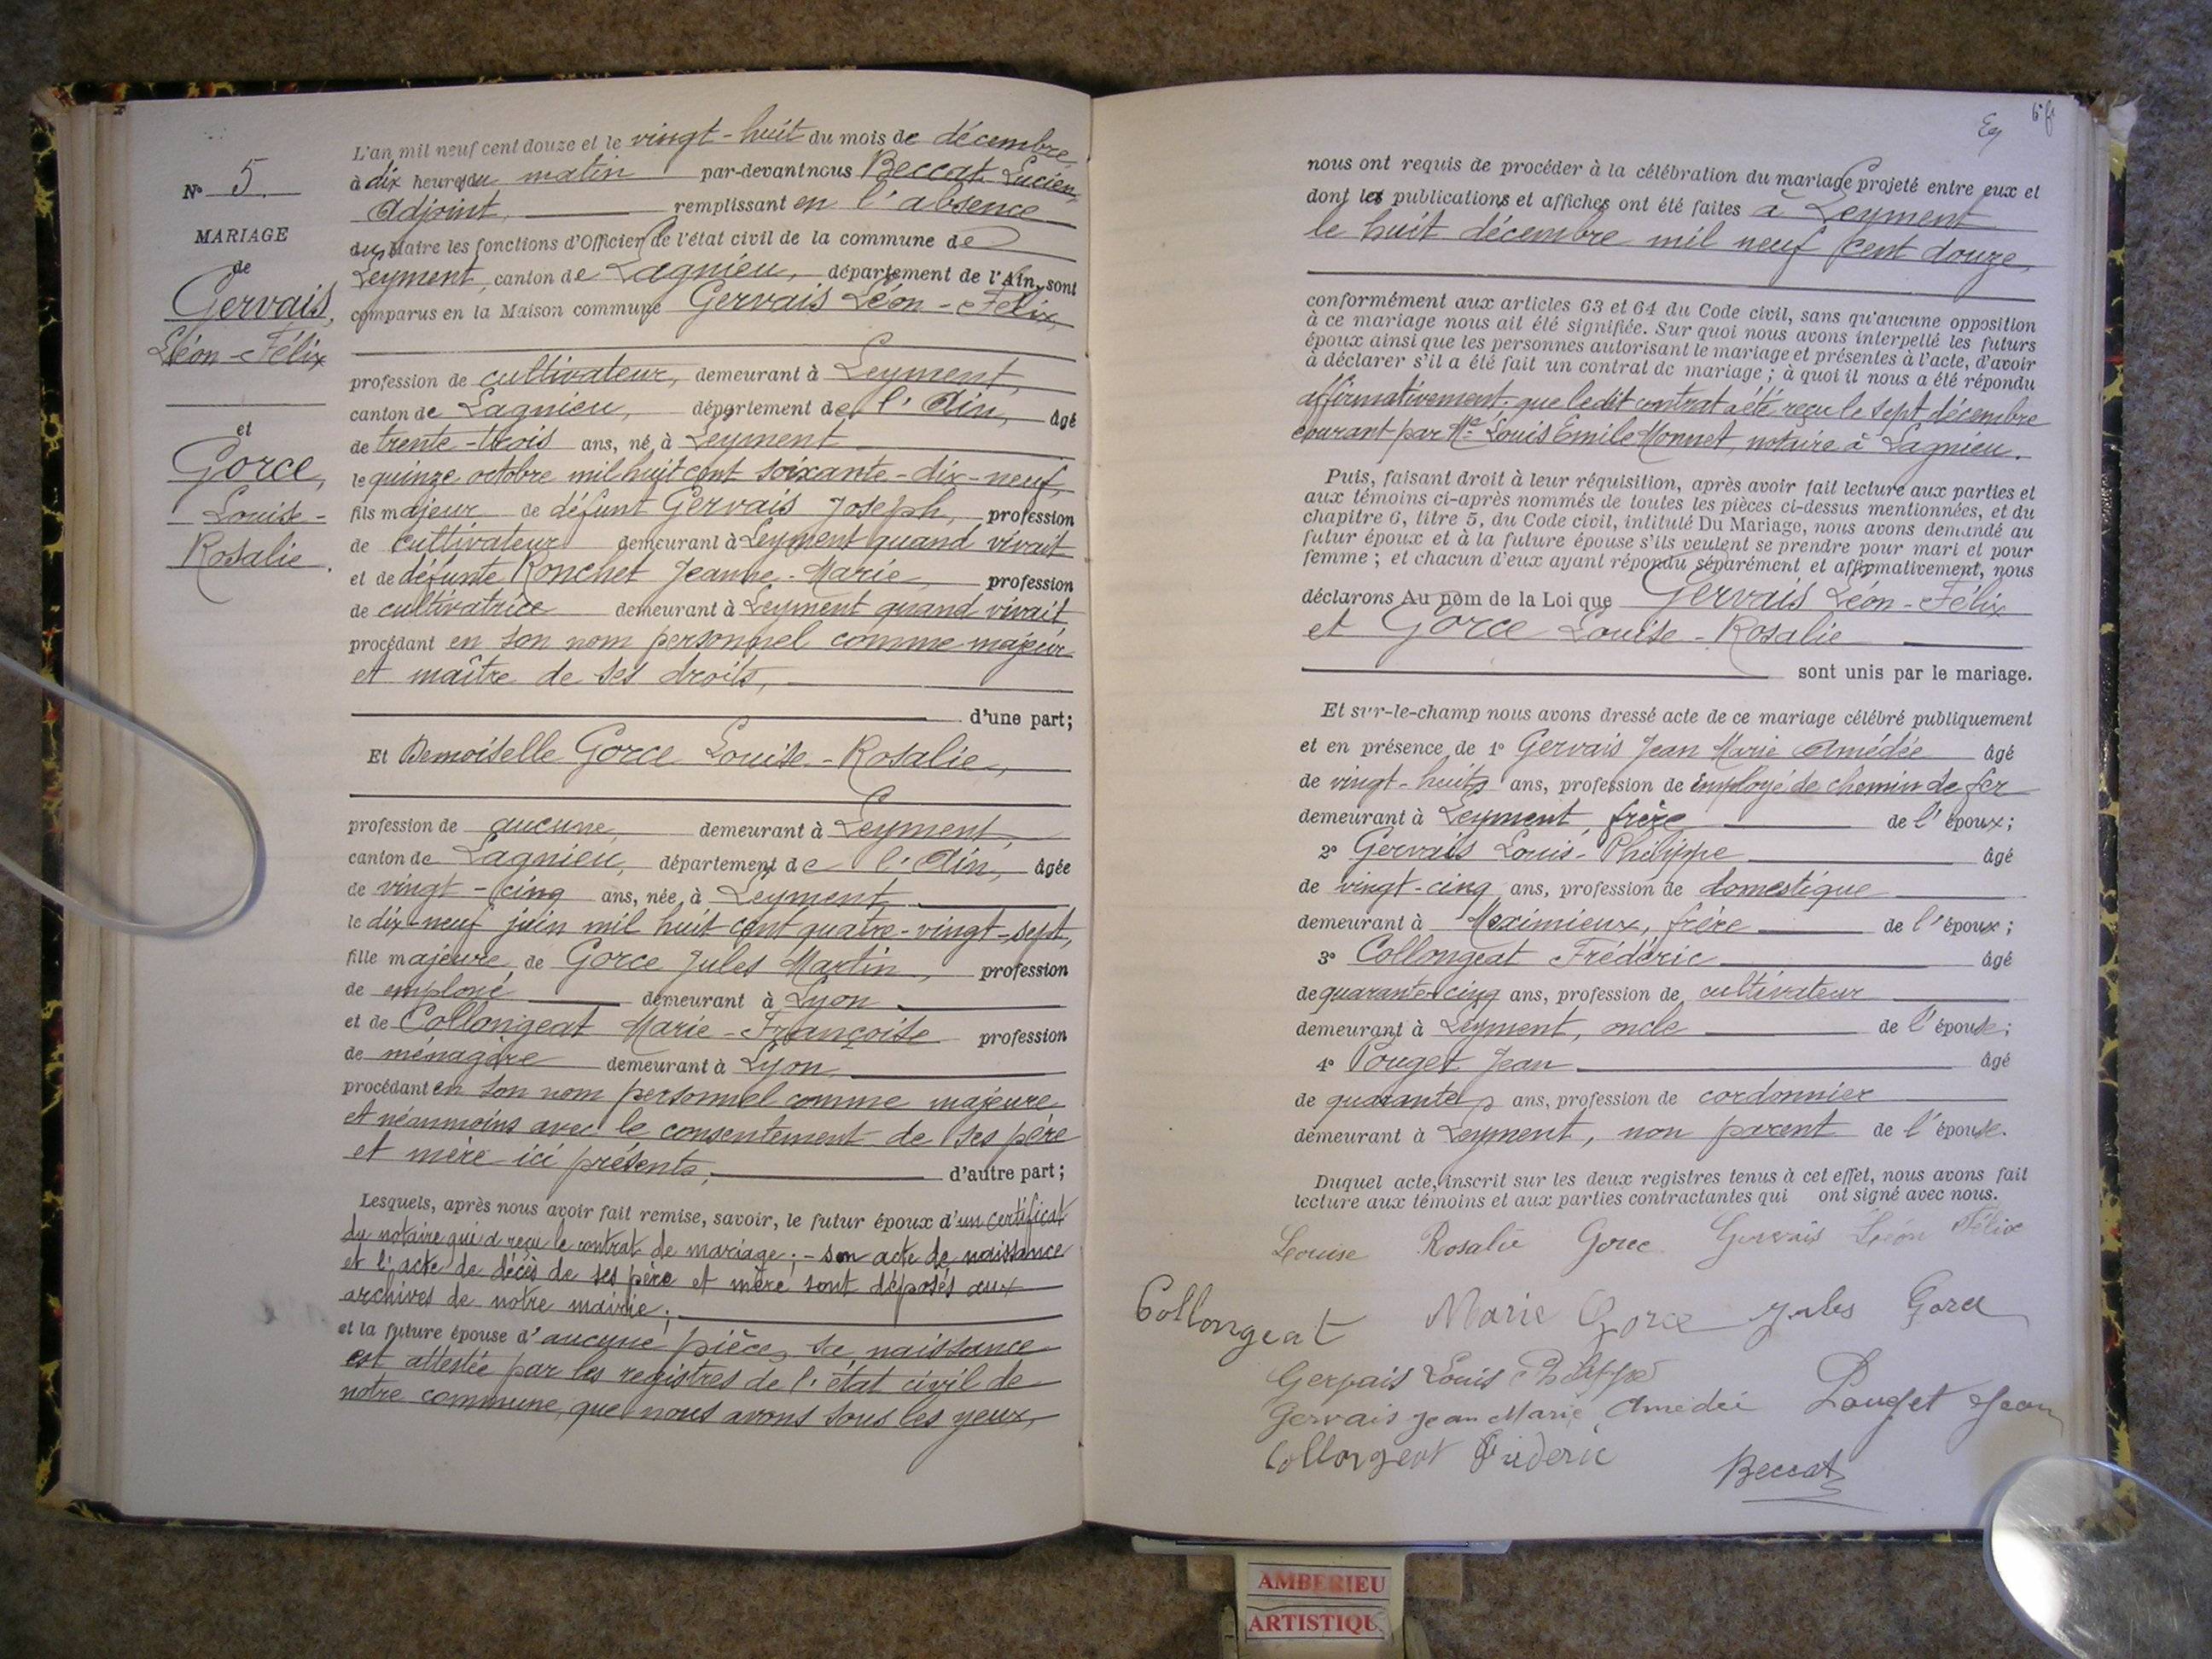 N° 5.
MARIAGE
de
Gervais,
Léon-Félix
et
Gorce,
Louise-
Rosalie.
L'an mil neuf cent douze et le vingt-huit du mois de décembre,
à dix heures du matin par-devant nous Beccat Lucien,
Adjoint, remplissant en l'absence
du Maire les fonctions d'Officier de l'état civil de la commune de
Leyment, canton de Lagnieu, département de l'Ain, sont
comparus en la Maison commune Gervais Léon-Félix,
profession de cultivateur, demeurant à Leyment,
canton de Lagnieu, département de l'Ain, âgé
de trente-trois ans, né à Leyment
le quinze octobre mil huit cent soixante-dix-neuf,
fils majeur de défunt Gervais Joseph, profession
de cultivateur demeurant à Leyment quand vivait
et de défunte Ronchet Jeanne-Marie, profession
de cultivatrice demeurant à Leyment quand vivait
procédant en son nom personnel comme majeur
et maître de ses droits,
d'une part;
Et Demoiselle Gorce Louise-Rosalie,
profession de aucune, demeurant à Leyment,
canton de Lagnieu, département de l'Ain, âgée
de vingt-cinq ans, née à Leyment
le dix-neuf juin mil huit cent quatre-vingt-sept,
fille majeure de Gorce Jules Martin, profession
de employé demeurant à Lyon
et de Collongeat Marie-Françoise profession
de ménagère demeurant à Lyon
procédant en son nom personnel comme majeure
et néanmoins avec le consentement de ses père
et mère ici présents, d'autre part;
Lesquels, après nous avoir fait remise, savoir, le futur époux d'un certificat
du notaire qui a reçu le contrat de mariage; - son acte de naissance
et l'acte de décès de ses père et mère sont déposés aux
archives de notre mairie;
et la future épouse d'aucune pièce, sa naissance
est attestée par les registres de l'état civil de
notre commune, que nous avons sous les yeux,
nous ont requis de procéder à la célébration du mariage projeté entre eux et
dont les publications et affiches ont été faites à Leyment
le huit décembre mil neuf cent douze,
conformément aux articles 63 et 64 du Code civil, sans qu'aucune opposition
à ce mariage nous ait été signifiée. Sur quoi nous avons interpellé les futurs
époux ainsi que les personnes autorisant le mariage et présentes à l'acte, d'avoir
à déclarer s'il a été fait un contrat de mariage; à quoi il nous a été répondu
affirmativement que ledit contrat a été reçu le sept décembre
courant par Me Louis Emile Monnet, notaire à Lagnieu.
Puis, faisant droit à leur réquisition, après avoir fait lecture aux parties et
aux témoins ci-après nommés de toutes les pièces ci-dessus mentionnées, et du
chapitre 6, titre 5, du Code civil, intitulé Du Mariage, nous avons demandé au
futur époux et à la future épouse s'ils veulent se prendre pour mari et pour
femme; et chacun d'eux ayant répondu séparément et affirmativement, nous
déclarons Au nom de la Loi que Gervais Léon-Félix
et Gorce Louise-Rosalie
sont unis par le mariage.
Et sur-le-champ nous avons dressé acte de ce mariage célébré publiquement
et en présence de 1° Gervais Jean Marie Amédée âgé
de vingt-huit ans, profession de employé de chemin de fer
demeurant à Leyment, frère de l'époux;
2° Gervais Louis-Philippe âgé
de vingt-cinq ans, profession de domestique
demeurant à Meximieux, frère de l'époux;
3° Collongeat Frédéric âgé
de quarante-cinq ans, profession de cultivateur
demeurant à Leyment, oncle de l'épouse;
4° Pouget Jean âgé
de quarante ans, profession de cordonnier
demeurant à Leyment, non parent de l'épouse.
Duquel acte, inscrit sur les deux registres tenus à cet effet, nous avons fait
lecture aux témoins et aux parties contractantes qui ont signé avec nous.
Louise Rosalie Gorce Gervais Léon Félix
Collongeat Marie Gorce Jules Gorce
Gervais Louis Philippe
Gervais Jean Marie Amédée Pouget Jean
Collongeat Frédéric
Beccat
AMBERIEU
ARTISTIQU